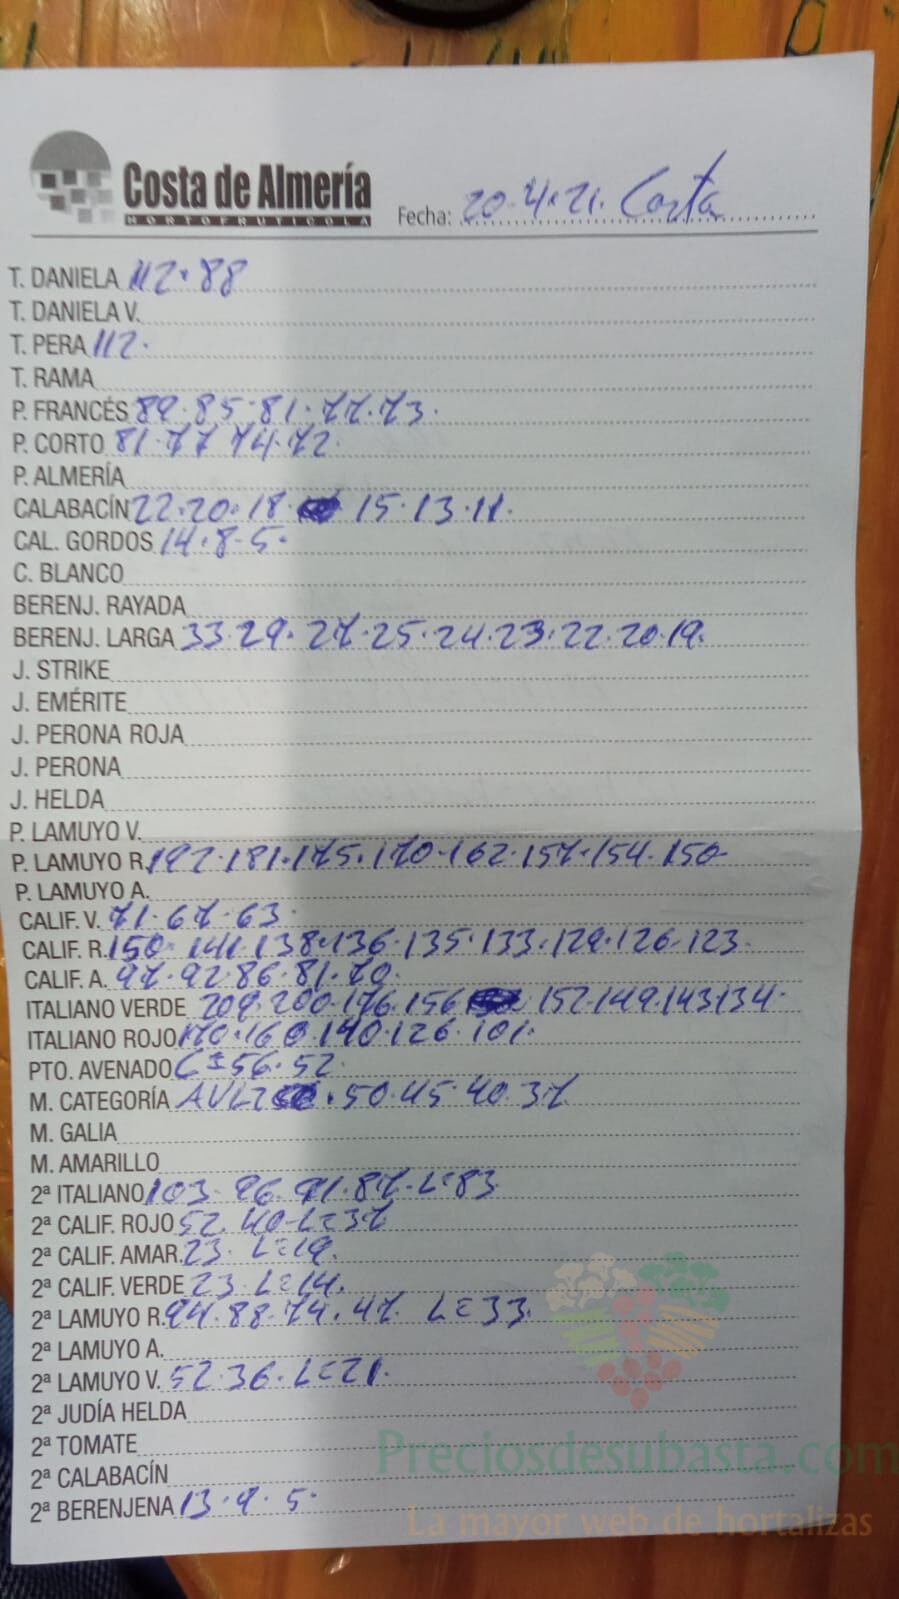 Costa de Almería
HORTOFRUTICOLA
Fecha: 20.4.21. Costa
T. DANIELA 112.88
T. DANIELA V.
T. PERA 112.
T. RAMA
P. FRANCÉS 89.85.81.77.73.
P. CORTO 81.77 74.72.
P. ALMERÍA
CALABACÍN 22.20.18. 15.13.11.
CAL. GORDOS 14.8.5.
C. BLANCO
BERENJ. RAYADA
BERENJ. LARGA 33.29.27.25.24.23.22.20.19.
J. STRIKE
J. EMÉRITE
J. PERONA ROJA
J. PERONA
J. HELDA
P. LAMUYO V.
P. LAMUYO R. 181.175.170.162.157.154.150
P. LAMUYO A.
CALIF. V. 71.67.63.
CALIF. R. 150.141.138.136.135.133.129.126.123.
CALIF. A. 97.92.86.81.70.
ITALIANO VERDE 209.200.176.156 152.149.143.134.
ITALIANO ROJO 170.160.140.126.101.
PTO. AVENADO 56.52.
M. CATEGORÍA .50.45.40.37
M. GALIA
M. AMARILLO
2ª ITALIANO 103.96.91.87.L=83
2ª CALIF. ROJO 52.40.L=37
2ª CALIF. AMAR. 23. L=19.
2ª CALIF. VERDE 23.L=14.
2ª LAMUYO R. 94.88.74.47. L=33.
2ª LAMUYO A.
2ª LAMUYO V. 52.36.L=21.
2ª JUDÍA HELDA
2ª TOMATE
2ª CALABACÍN
2ª BERENJENA 13.9.5.
Preciosdesubasta.com
La mayor web de hortalizas